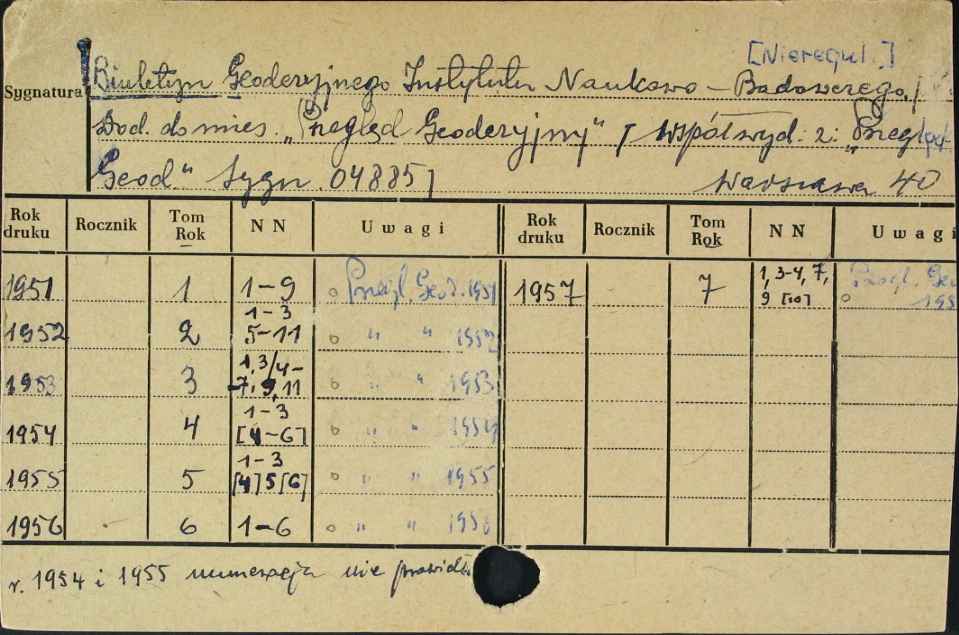 [Nieregul.]
Sygnatura Biuletyn Geodezyjnego Instytutu Naukowo-Badawczego.
Dod. do mies. „Przegląd Geodezyjny" / Współwyd. z: „Przegląd
Geod." Sygn. 048857 Warszawa 40
Rok druku Rocznik Tom Rok NN Uwagi Rok druku Rocznik Tom Rok NN Uwagi
1951 1 1-9 o Przegl. Geod. 1951 1957 7 1, 3-4, 7, 9 [10] Przegl. Geo o 195
1952 2 1-3 5-11 o " " 1952
1953 3 1, 3/4- -7, 9, 11 o " " 1953
1954 4 1-3 [4-6] o " " 1954
1955 5 1-3 [4] 5 [6] o " " 1955
1956 6 1-6 o " " 1956
r. 1954 i 1955 numeracja nie prawidł